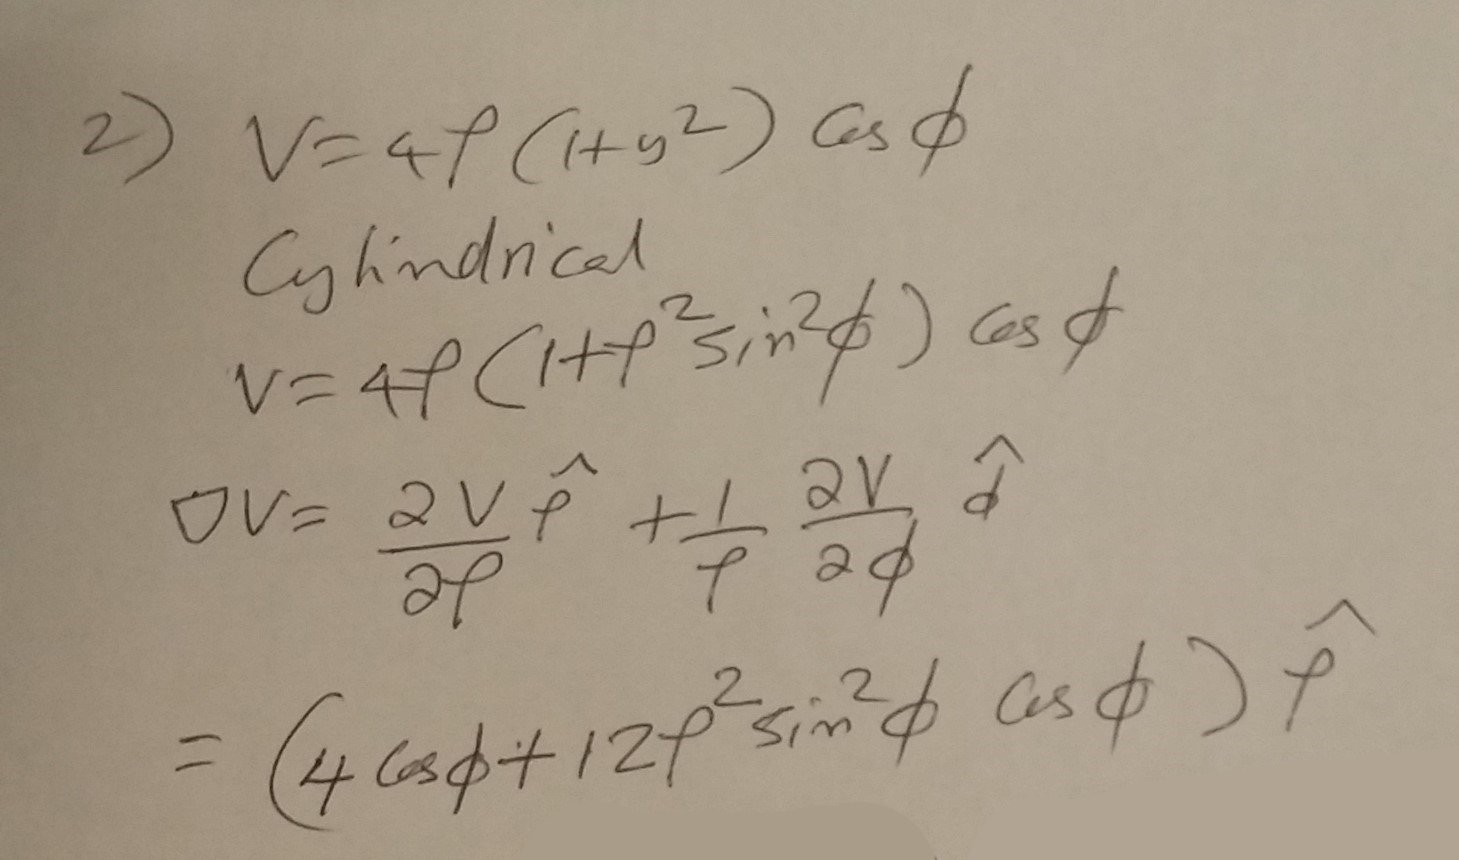 2) V=4ρ(1+y²) Cos ϕ
Cylindrical
V=4ρ(1+ρ²sin²ϕ) Cos ϕ
∇V= ∂V/∂ρ ρ̂ + 1/ρ ∂V/∂ϕ ϕ̂
= (4 Cosϕ+12ρ²sin²ϕ Cosϕ) ρ̂